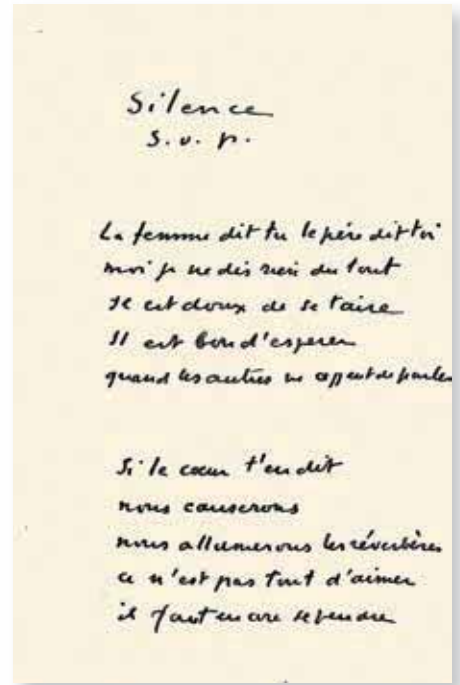 Silence
S. v. p.
La femme dit tu le père dit toi
moi je ne dis rien du tout
Il est doux de se taire
Il est bon d'espérer
quand les autres ne cessent de parler
Si le cœur t'en dit
nous causerons
nous allumerons les réverbères
ce n'est pas tout d'aimer
il faut encore se pendre